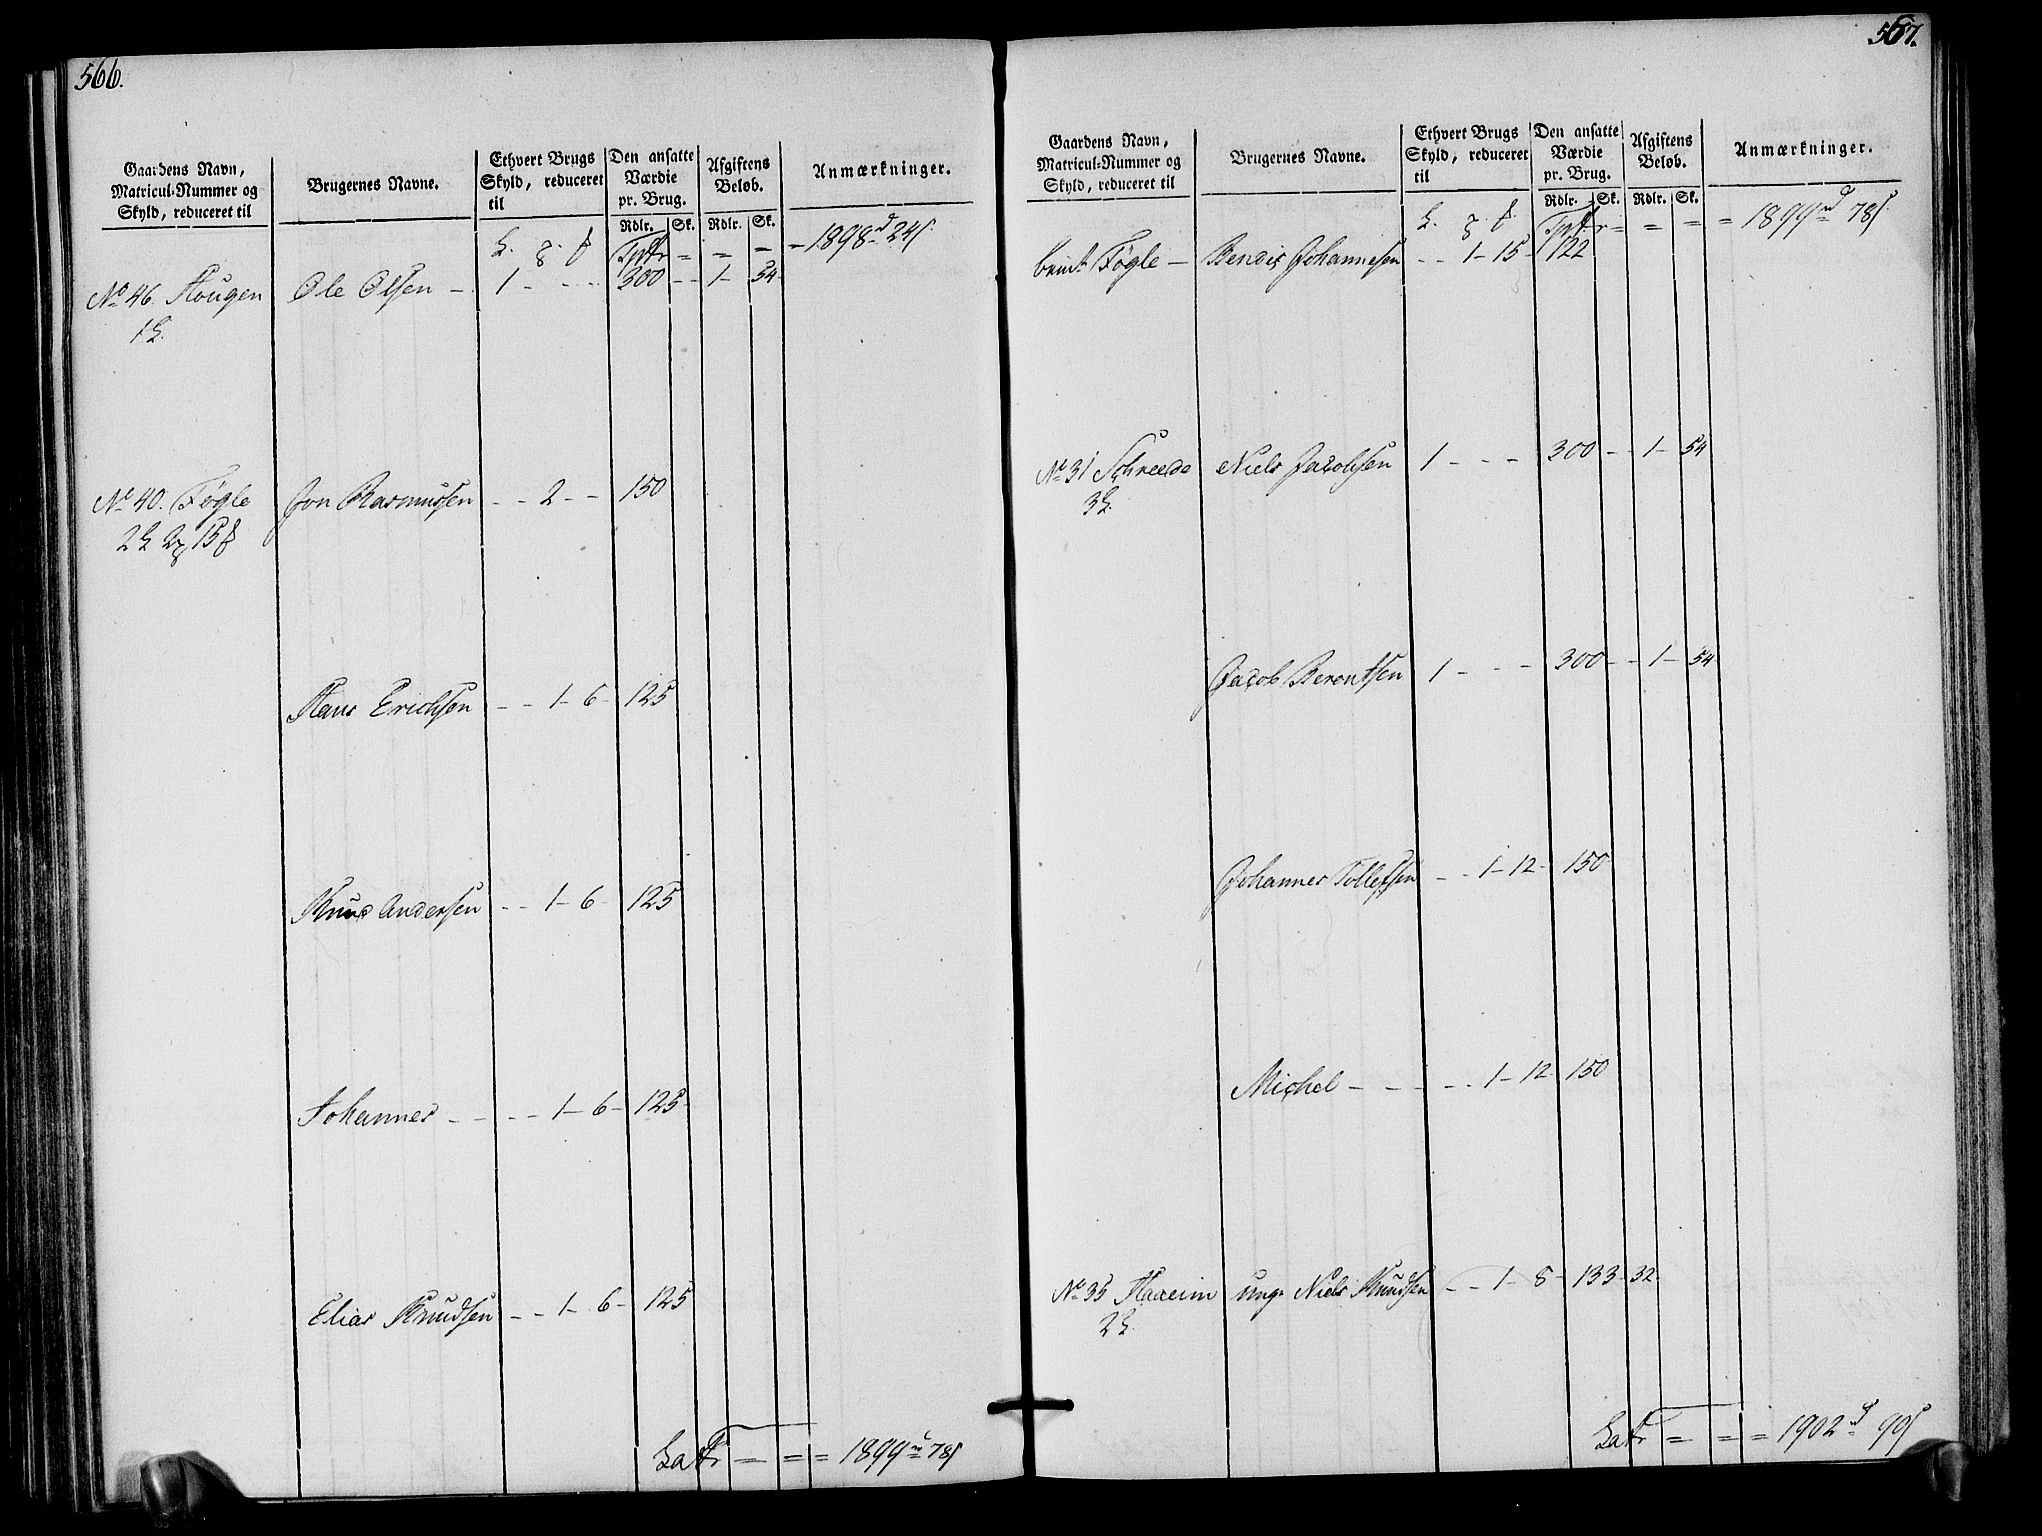 566.
Gaardens Navn, Matricul-Nummer og Skyld, reduceret til
Brugernes Navne.
Ethvert Brugs Skyld, reduceret til
Den ansatte Værdie pr. Brug.
Rdlr. Sk.
Afgiftens Beløb.
Rdlr. Sk.
Anmærkninger.
Tpstr = = = = 1898 d 24 s.
No 46. Hougen Ole Olsen - 1 - - - 300 - - 1 - 54
1 L.
No 40. Føgle Jon Rasmussen - - 2 - - 150
2 L 2 8 15 f
Hans Erichsen - - 1 - 6 - 125
Knud Andersen - - 1 - 6 - 125
Johannes - - - - 1 - 6 - 125
Elias Knudsen - - 1 - 6 - 125
Latr = = = 1899 d 78 s
567.
Gaardens Navn, Matricul-Nummer og Skyld, reduceret til
Brugernes Navne.
Ethvert Brugs Skyld, reduceret til
Den ansatte Værdie pr. Brug.
Rdlr. Sk.
Afgiftens Beløb.
Rdlr. Sk.
Anmærkninger.
Tpstr = = = = 1899 d 78 s.
Føgle - Bendix Johannesen - - 1 - 15 - 122
No 31 Schreede Niels Jacobsen 1 - - - 300 - - 1 - 54
3 L.
Jacob Berentsen 1 - - - 300 - - 1 - 54
Johannes Tollefsen - - 1 - 12 - 150
Michel - - - - - 1 - 12 - 150
No 35 Haaeim unge Niels Knudsen - - 1 - 8 - 133 - 32
2 L.
Latr = = = 1902 d 90 s